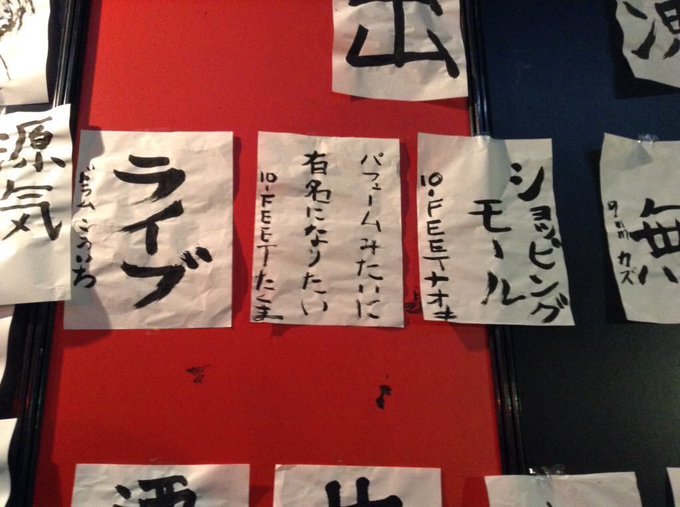 出
無
9mm カズ
ショッピング
モール
10-FEETナオキ
パフュームみたいに
有名になりたい
10-FEETたくま
ライブ
ドラム こういち
源気